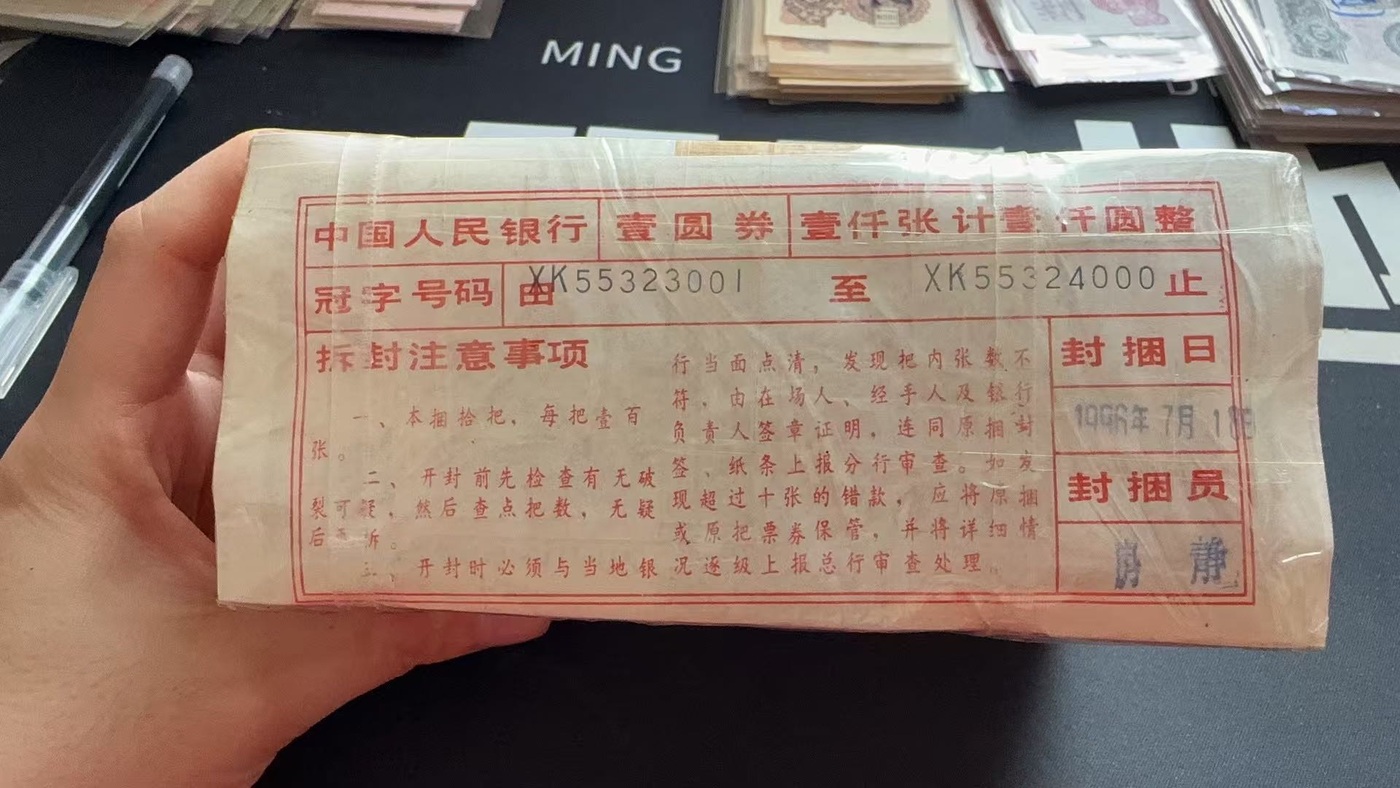 MING
中国人民银行 壹圆券 壹仟张计壹仟圆整
冠字号码 由XK55323001 至 XK55324000止
拆封注意事项
一、本捆拾把，每把壹百
张。
二、开封前先检查有无破
裂可疑，然后查点把数，无疑
后再拆。
三、开封时必须与当地银
行当面点清，发现把内张数不
符，由在场人、经手人及银行
负责人签章证明，连同原捆封
签、纸条上报分行审查。如发
现超过十张的错款，应将原捆
或原把票券保管，并将详细情
况逐级上报总行审查处理。
封捆日
1996年7月18日
封捆员
静